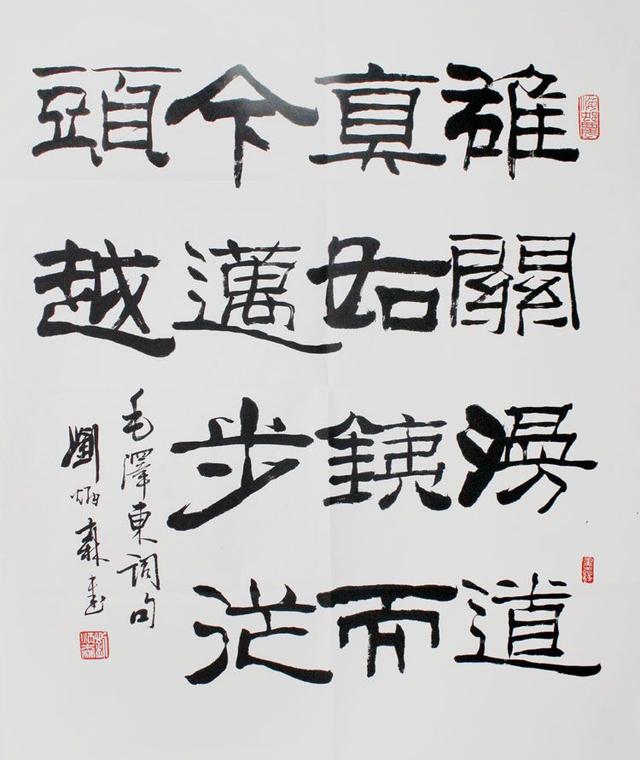 雄關漫道
真如銕而
今邁步從
頭越
毛澤東詞句
劉炳森書